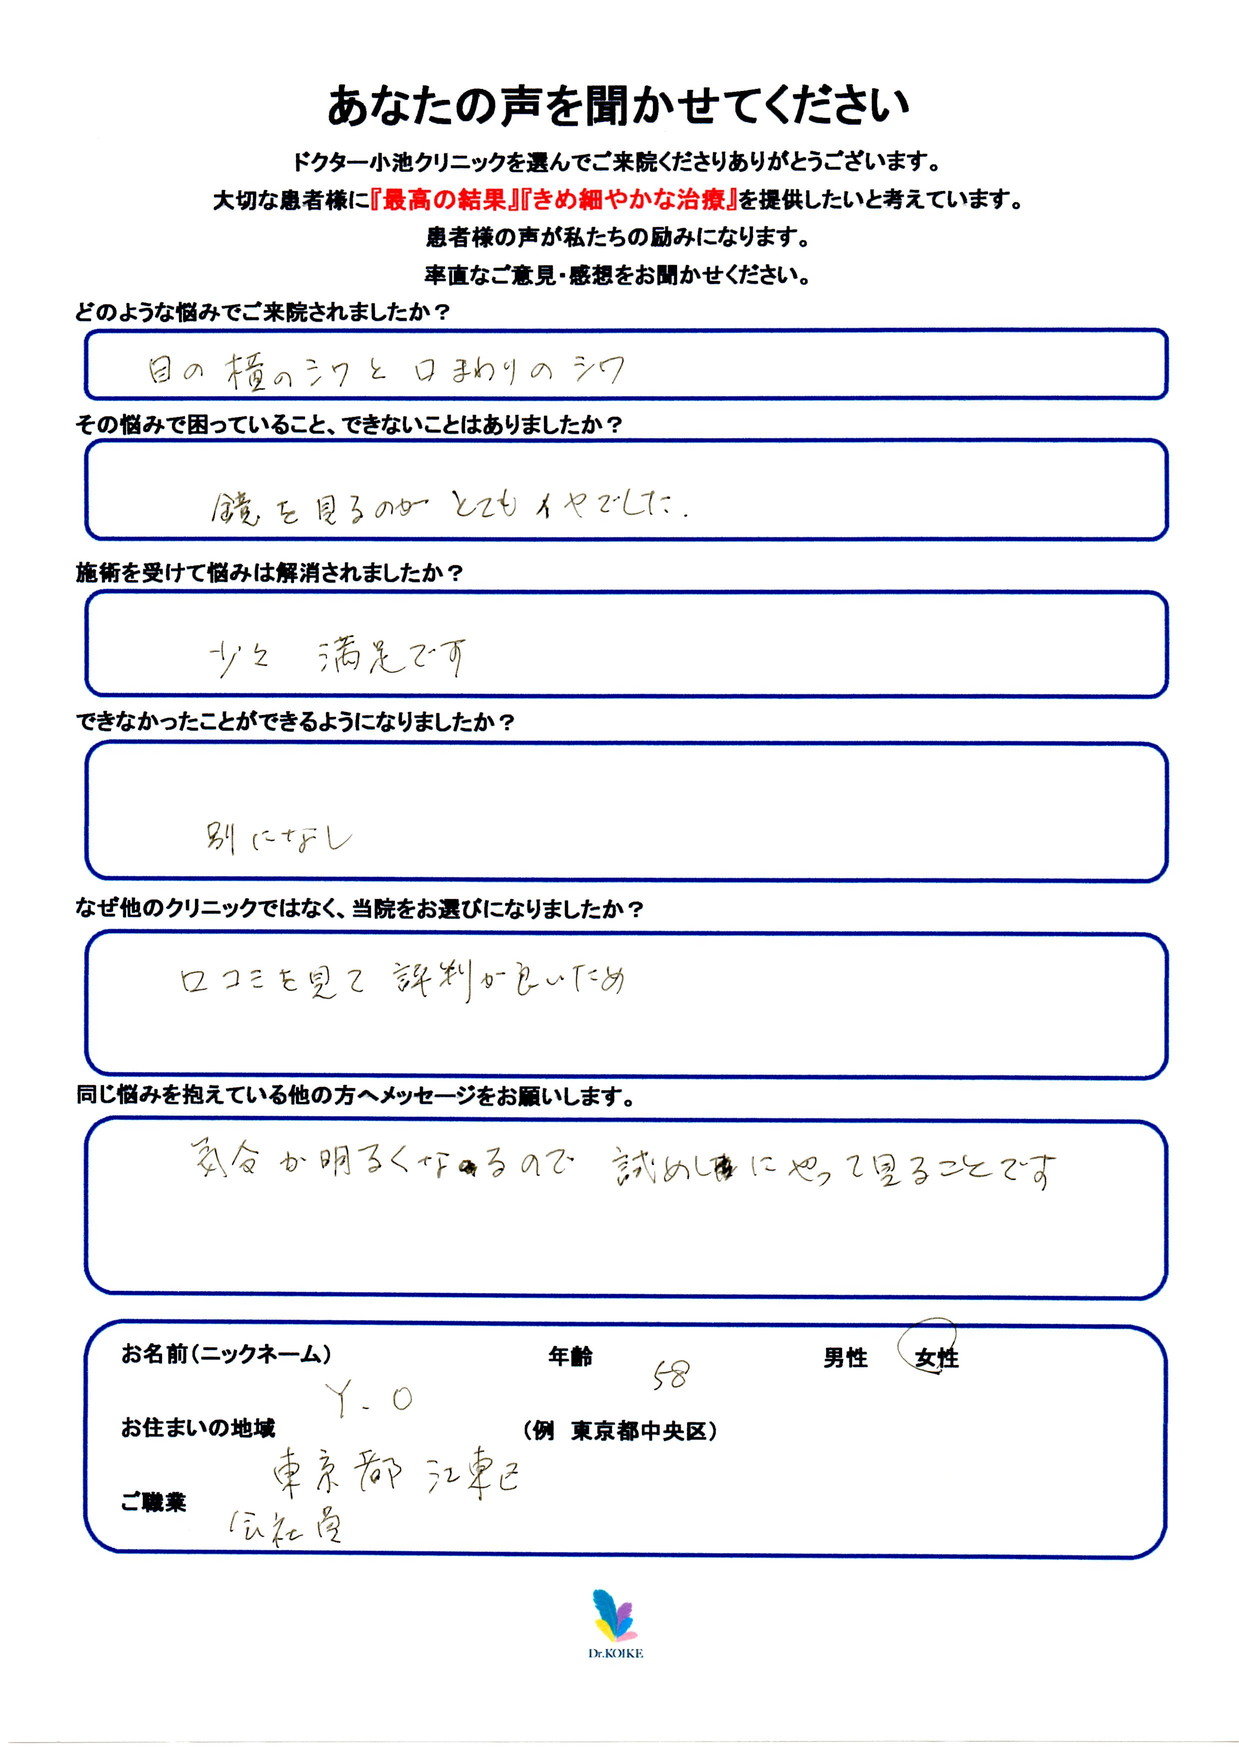 あなたの声を聞かせてください
ドクター小池クリニックを選んでご来院くださりありがとうございます。
大切な患者様に『最高の結果』『きめ細やかな治療』を提供したいと考えています。
患者様の声が私たちの励みになります。
率直なご意見・感想をお聞かせください。
どのような悩みでご来院されましたか?
目の横のシワと口まわりのシワ
その悩みで困っていること、できないことはありましたか?
鏡を見るのがとてもイヤでした.
施術を受けて悩みは解消されましたか?
少々 満足です
できなかったことができるようになりましたか?
別になし
なぜ他のクリニックではなく、当院をお選びになりましたか?
口コミを見て評判が良いため
同じ悩みを抱えている他の方へメッセージをお願いします。
気分が明るくなるので 試めしにやって見ることです
お名前(ニックネーム) 年齢 58 男性 女性
Y.O
お住まいの地域 (例 東京都中央区)
東京都 江東区
ご職業
会社員
Dr.KOIKE